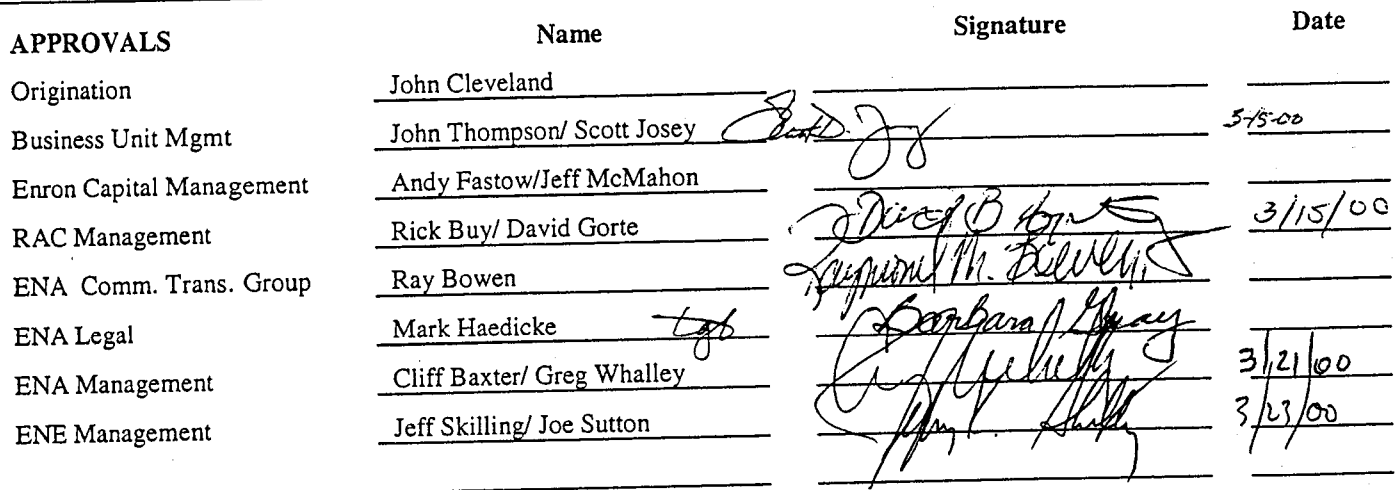 APPROVALS Name Signature Date
Origination John Cleveland
Business Unit Mgmt John Thompson/ Scott Josey 3-15-00
Enron Capital Management Andy Fastow/Jeff McMahon
RAC Management Rick Buy/ David Gorte 3/15/00
ENA Comm. Trans. Group Ray Bowen Raymond M. Bowen, Jr
ENA Legal Mark Haedicke Barbara Gray
ENA Management Cliff Baxter/ Greg Whalley 3/21/00
ENE Management Jeff Skilling/ Joe Sutton 3/23/00